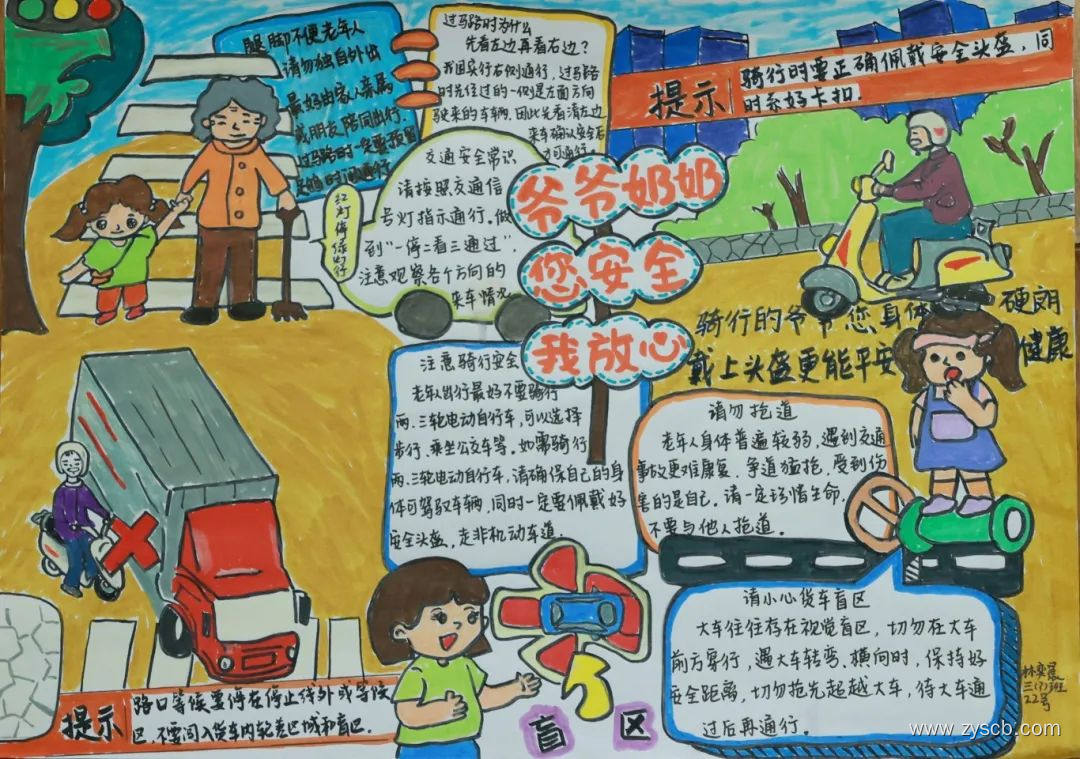 腿脚不便老年人
请勿独自外出
最好由家人亲属
或朋友陪同出行.
过马路时一定要预留
足够时间通行
过马路时为什么
先看左边再看右边?
我国实行右侧通行,过马路
时先经过的一侧是左面方向
驶来的车辆,因此先看清左边
来车确认安全后
才可通行。
提示
骑行时要正确佩戴安全头盔,同
时系好卡扣.
红灯停绿灯行
交通安全常识
请按照交通信
号灯指示通行,做
到“一停二看三通过”,
注意观察各个方向的
来车情况
爷爷奶奶
您安全
我放心
骑行的爷爷您身体硬朗
戴上头盔更能平安健康
注意骑行安全
老年出行最好不要骑行
两.三轮电动自行车,可以选择
步行、乘坐公交车等。如需骑行
两.三轮电动自行车,请确保自己的身
体可驾驭车辆,同时一定要佩戴好
安全头盔,走非机动车道.
请勿抢道
老年人身体普遍较弱,遇到交通
事故更难康复,争道猛抢,受到伤
害的是自己.请一定珍惜生命,
不要与他人抢道。
请小心货车盲区
大车往往存在视觉盲区,切勿在大车
前方穿行,遇大车转弯、横向时,保持好
安全距离,切勿抢先超越大车,待大车通
过后再通行。
提示
路口等候要停在停止线外或等候
区,不要闯入货车内轮差区域和盲区.
盲区
三(7)班
22号
www.zyscb.com